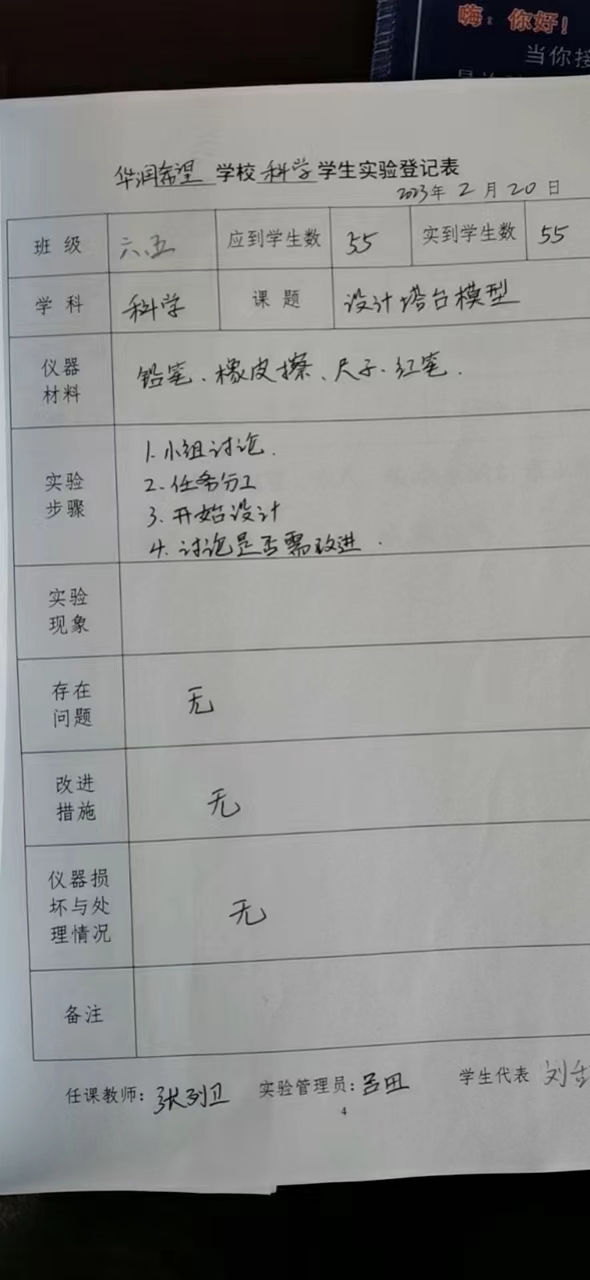 嗨，你好！
当你接
华润希望学校科学学生实验登记表
2023年2月20日
班级 六.五 应到学生数 55 实到学生数 55
学科 科学 课题 设计塔台模型
仪器材料 铅笔、橡皮擦、尺子、红笔.
实验步骤 1.小组讨论.
2.任务分工
3.开始设计
4.讨论是否需改进.
实验现象
存在问题 无
改进措施 无
仪器损坏与处理情况 无
备注
任课教师：张列卫 实验管理员：吕田 学生代表 刘
4